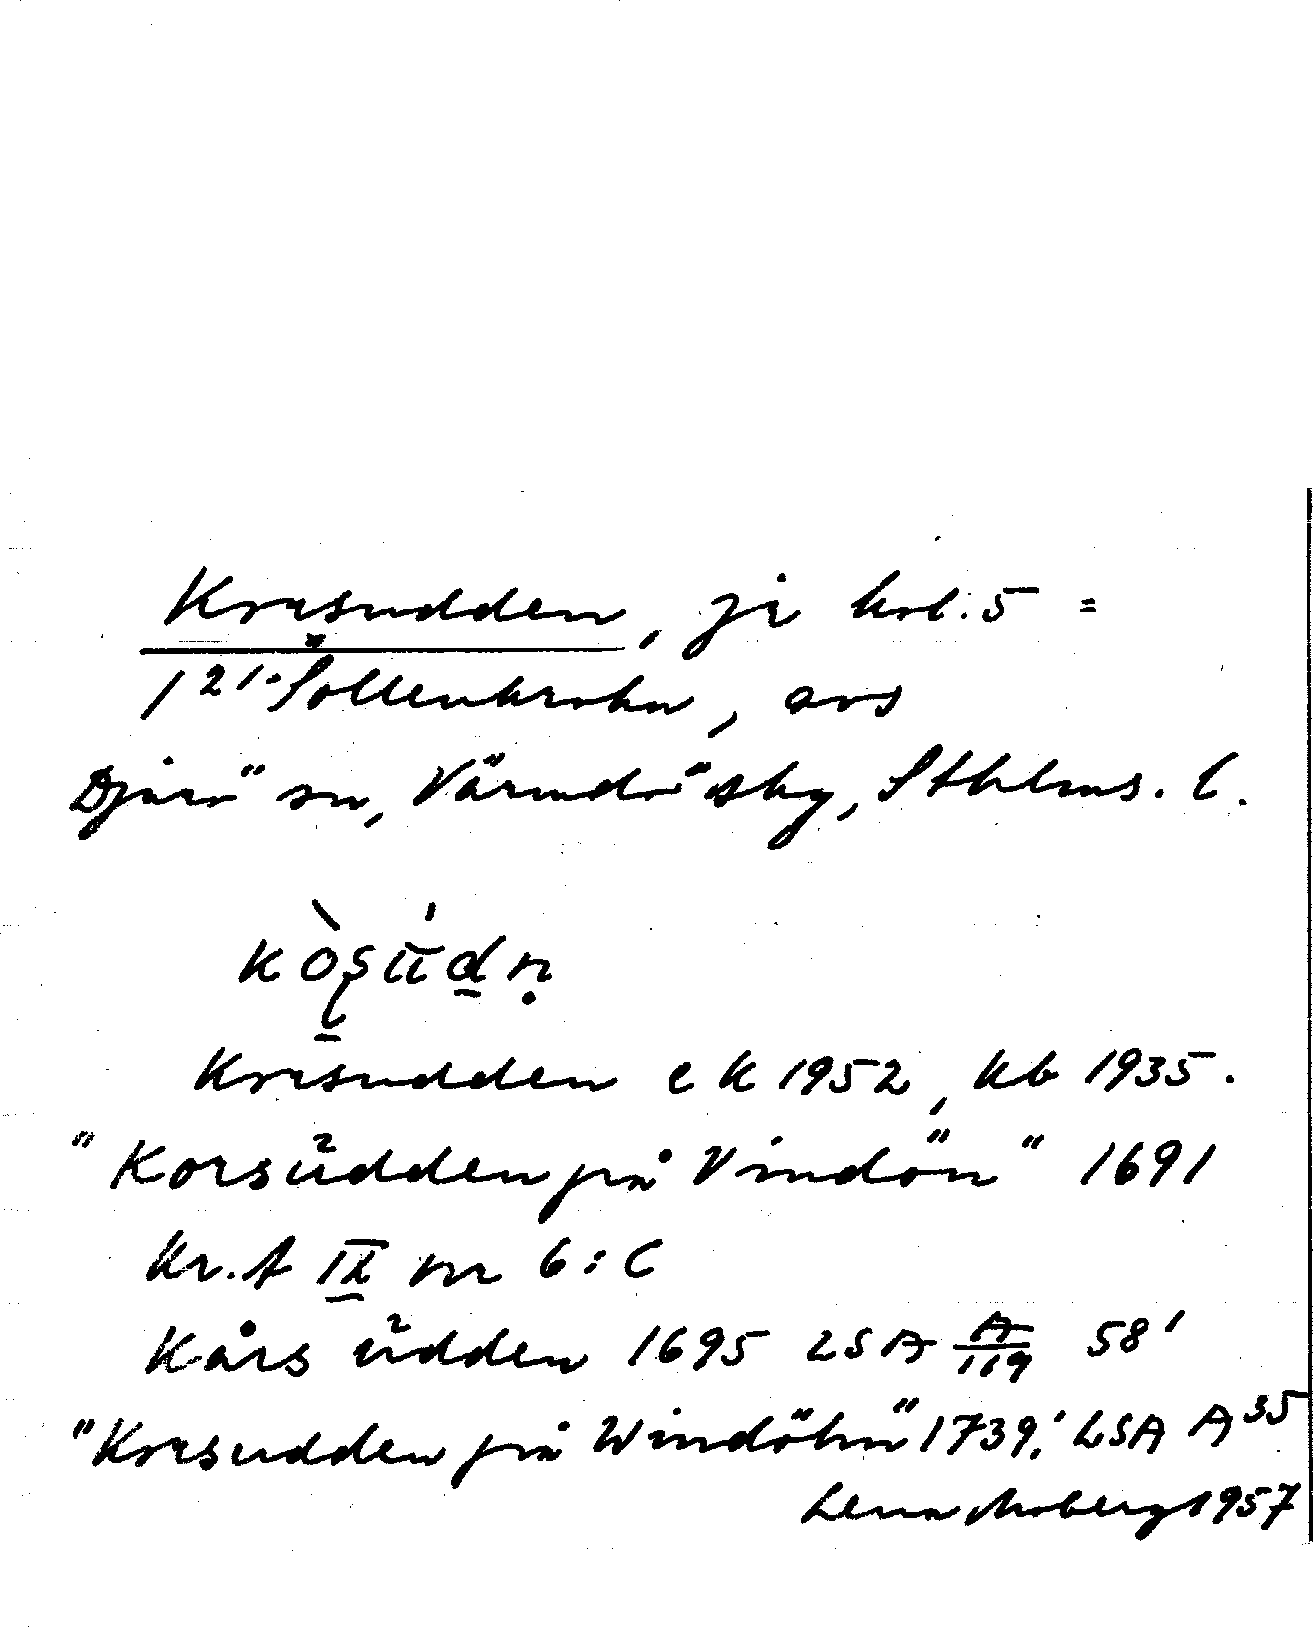 Korsudden, jr hrl. 5 =
1 21. Söllenkroken, avs
Djurö sn, Värmdö sky, Sthlms. l.
Korsudden ek 1952, kb 1935.
"Korsŭdden på Vindön" 1691
Kr. A IX nr 6:C
Kårs ŭdden 1695 LSA A/119 58'
"Korsudden på Windöhn" 1739, LSA A 35
Lena Moberg 1957